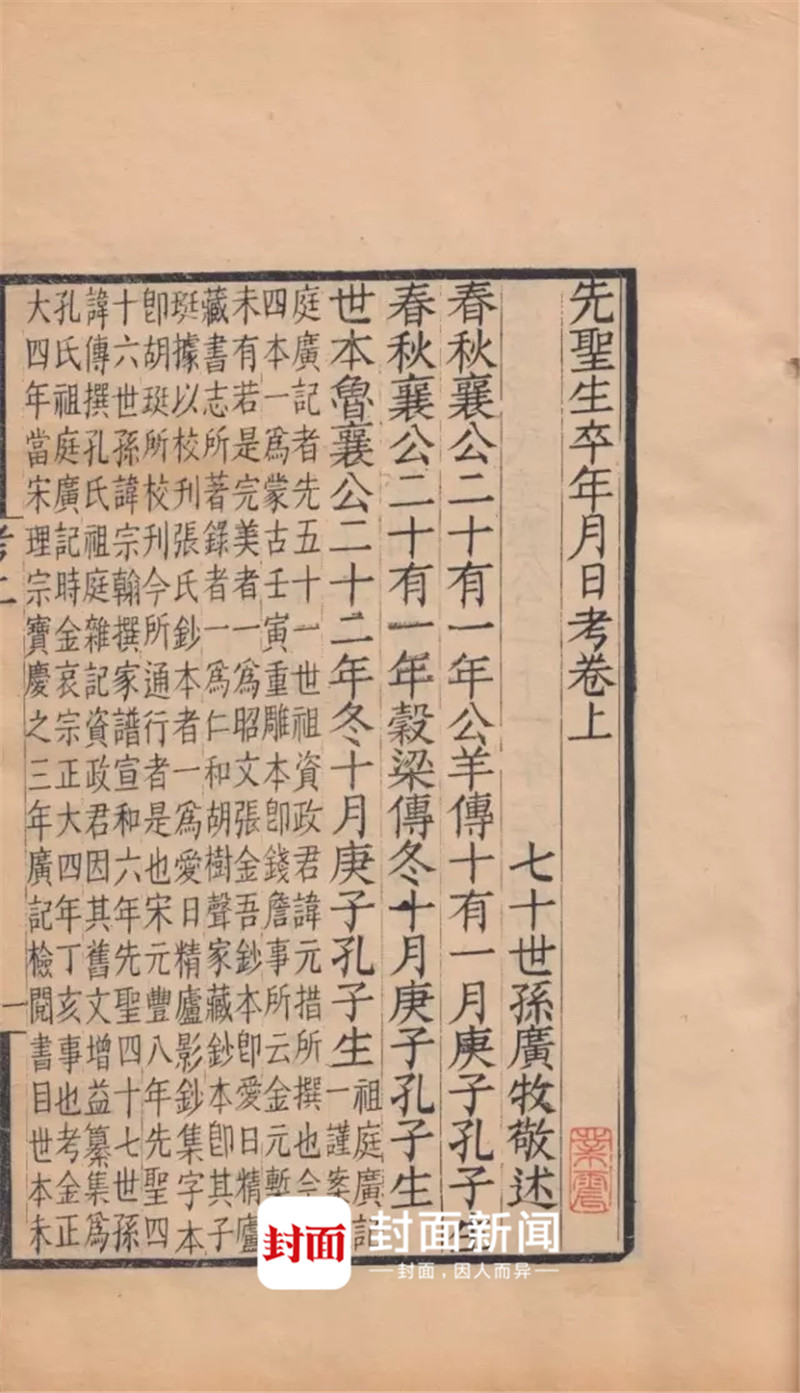 先聖生卒年月日考卷上
七十世孫廣牧敬述
春秋襄公二十有一年公羊傳十有一月庚子孔子
春秋襄公二十有一年穀梁傳冬十月庚子孔子生
世本魯襄公二十二年冬十月庚子孔子生
祖庭廣記
一謹案
庭廣記者先五十一世祖資政君諱元措所撰也今
四本一爲蒙古壬寅重雕本卽錢詹事所云金元塹
未有若是完美者一爲昭文張金吾鈔本卽愛日精廬
藏書志所著錄者一爲仁和胡樹聲家藏鈔本卽其子
珽據以校刊張氏鈔本者一爲愛日精廬影鈔集字本
卽胡珽所校刊今所通行者是也宋元豐八年先聖四
十六世孫諱宗翰撰家譜宣和六年先聖四十七世孫
諱傳撰孔氏祖庭雜記資政君因其舊文增益纂集爲
孔氏祖庭廣記時金哀宗正大四年丁亥事也考金正
大四年當宋理宗寶慶之三年廣記檢閱書目世本未
一
封面
封面新闻
封面，因人而异